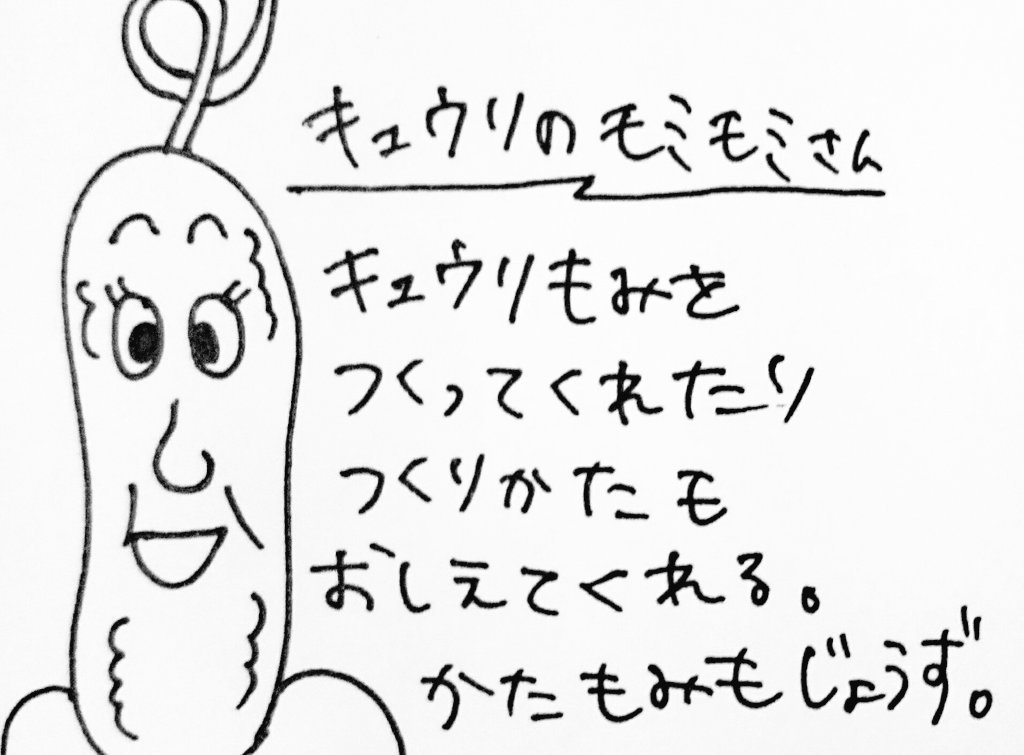 キュウリのモミモミさん
キュウリもみを
つくってくれたり
つくりかたも
おしえてくれる。
かたもみもじょうず。